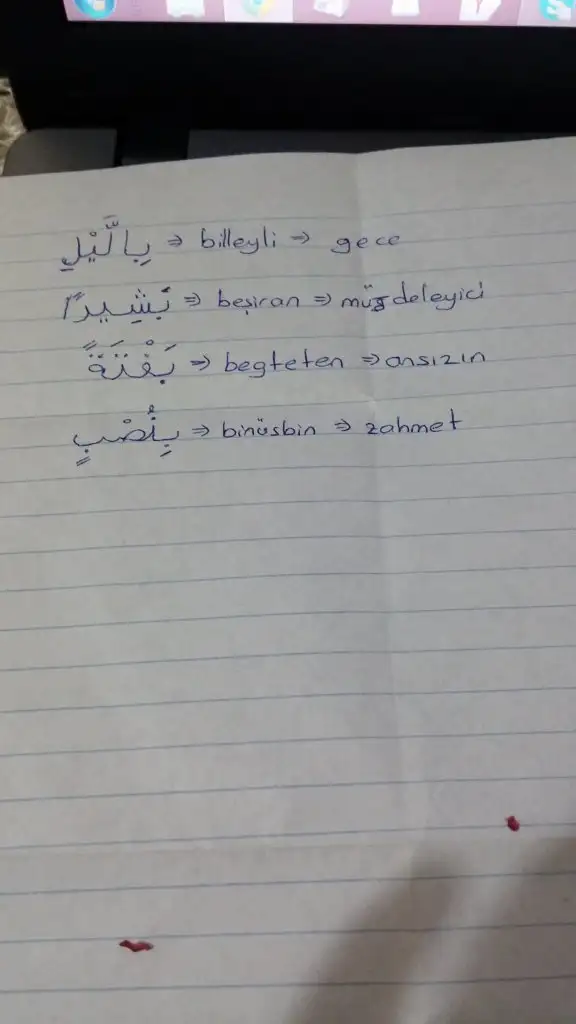 بِالَّيْلِ ⇒ billeyli ⇒ gece
بَشِيرًا ⇒ beşiran ⇒ müjdeleyici
بَغْتَةً ⇒ begteten ⇒ ansızın
بِنُصْبٍ ⇒ binüsbin ⇒ zahmet